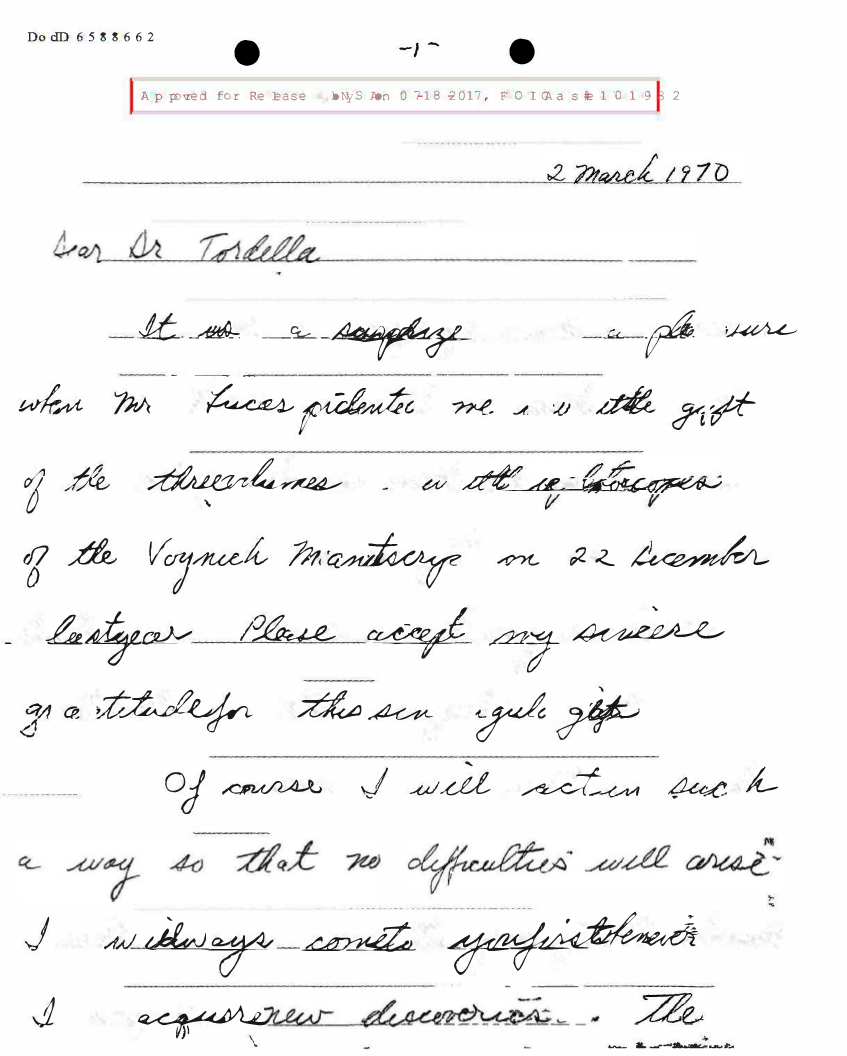 DocID 6588662
-1-
Approved for Release by NSA on 07-18-2017, FOIA Case # 101982
2 March 1970
Dear Dr Tordella
It was a surprize a pleasure
when Mr Lucas me with the gift
of the three volumes with
of the Voynich Manuscrip on 22 December
last year Please accept my sincere
gratitude for this singula gift
Of course I will act in such
a way so that no difficulties will arise
I will always come to you first whenever
I acquire new discoveries. The